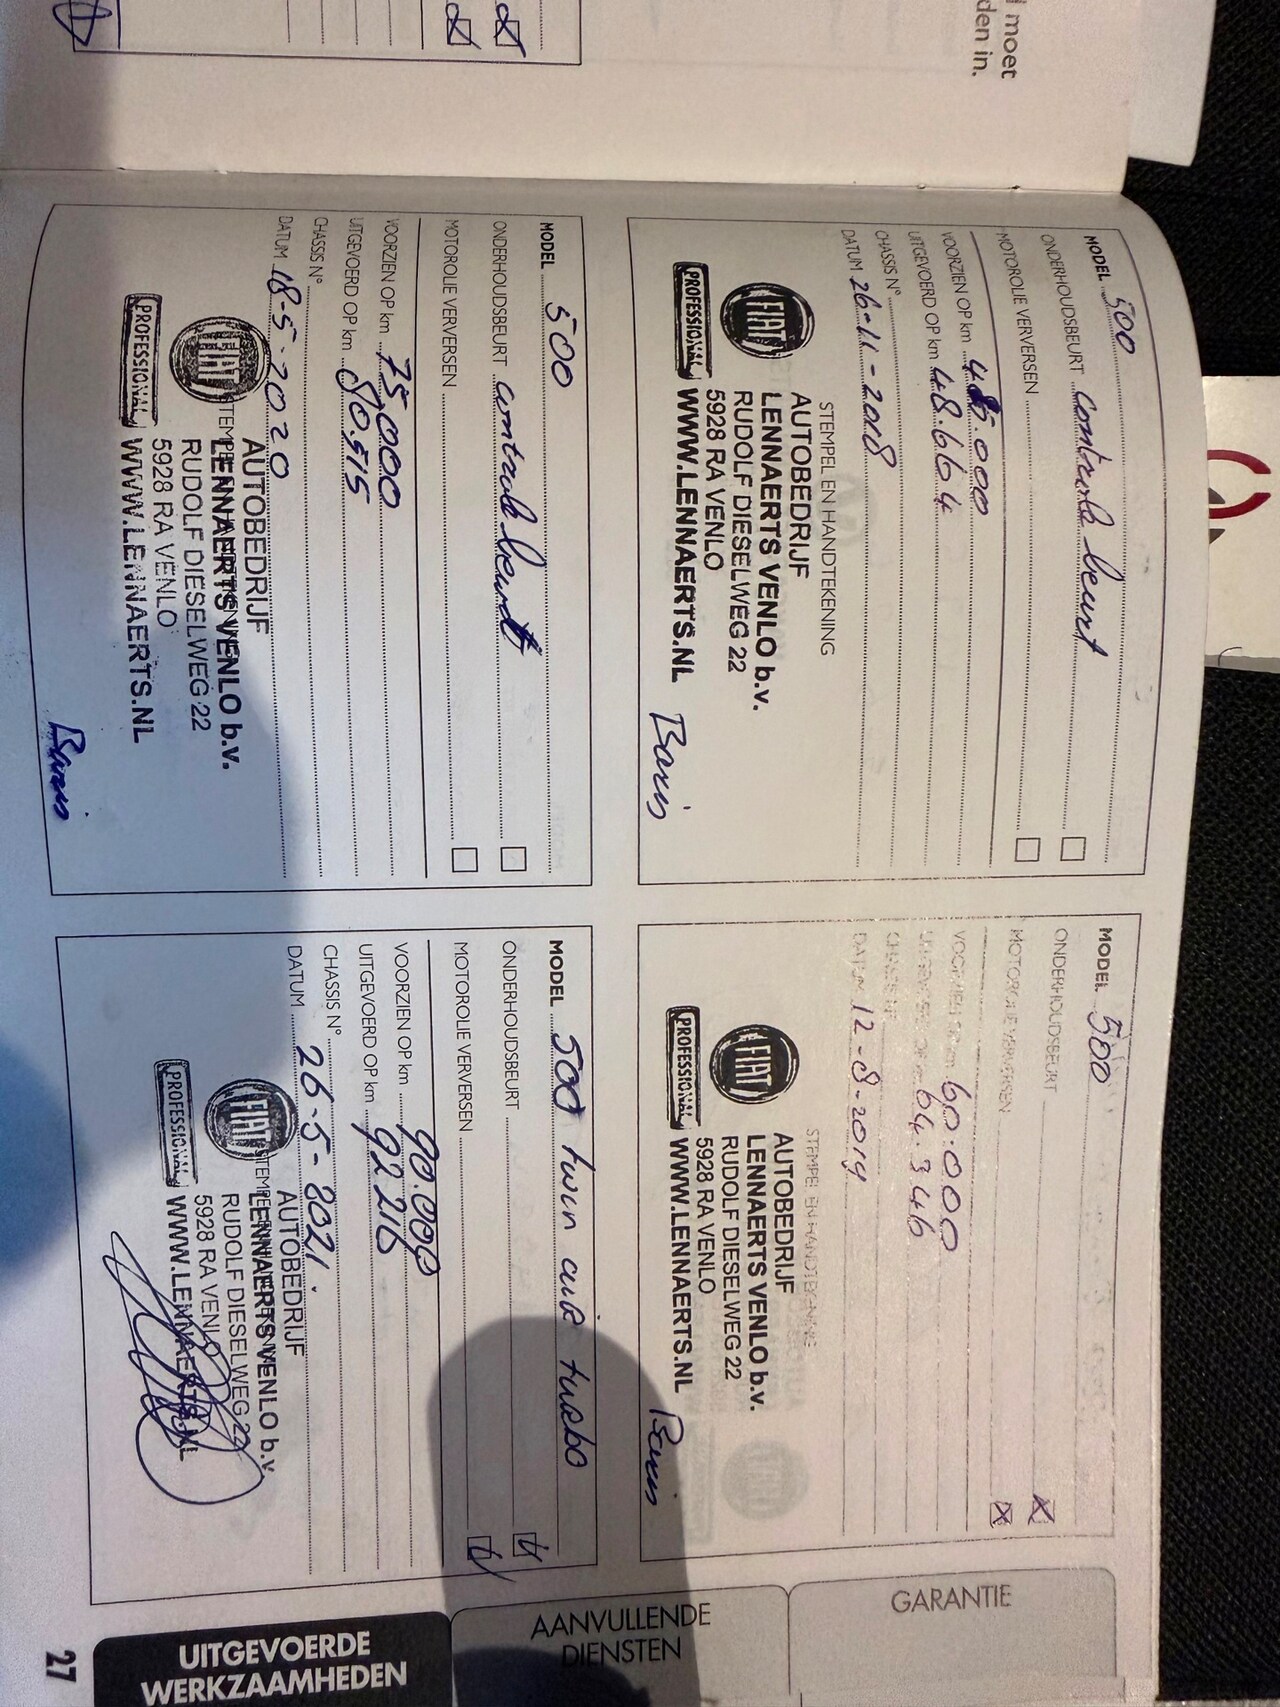 moet
den in.
MODEL 500
ONDERHOUDSBEURT controle beurt
MOTOROLIE VERVERSEN
VOORZIEN OP km 45.000
UITGEVOERD OP km 48.664
CHASSIS N°
DATUM 26-11-2018
STEMPEL EN HANDTEKENING
FIAT
PROFESSIONAL
AUTOBEDRIJF
LENNAERTS VENLO b.v.
RUDOLF DIESELWEG 22
5928 RA VENLO
WWW.LENNAERTS.NL
Baris
MODEL 500
ONDERHOUDSBEURT
MOTOROLIE VERVERSEN
VOORZIEN OP km 60.000
UITGEVOERD OP km 64.346
CHASSIS N°
DATUM 12-8-2019
STEMPEL EN HANDTEKENING
FIAT
PROFESSIONAL
AUTOBEDRIJF
LENNAERTS VENLO b.v.
RUDOLF DIESELWEG 22
5928 RA VENLO
WWW.LENNAERTS.NL
Baris
MODEL 500
ONDERHOUDSBEURT controle beurt
MOTOROLIE VERVERSEN
VOORZIEN OP km 75.000
UITGEVOERD OP km 80.515
CHASSIS N°
DATUM 18-5-2020
FIAT
PROFESSIONAL
AUTOBEDRIJF
LENNAERTS VENLO b.v.
RUDOLF DIESELWEG 22
5928 RA VENLO
WWW.LENNAERTS.NL
Baris
MODEL 500 twin air turbo
ONDERHOUDSBEURT
MOTOROLIE VERVERSEN
VOORZIEN OP km 90.000
UITGEVOERD OP km 92216
CHASSIS N°
DATUM 26-5-2021.
FIAT
PROFESSIONAL
AUTOBEDRIJF
LENNAERTS VENLO b.v.
RUDOLF DIESELWEG 22
5928 RA VENLO
WWW.LENNAERTS.NL
GARANTIE
AANVULLENDE
DIENSTEN
UITGEVOERDE
WERKZAAMHEDEN
27